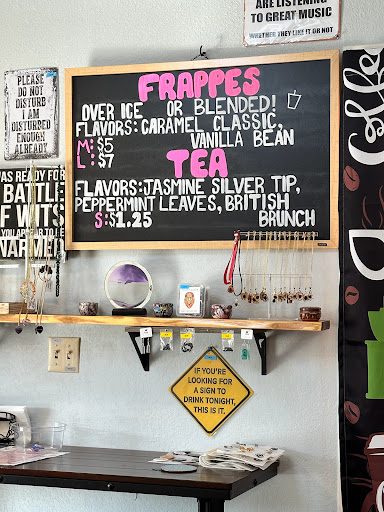 ARE LISTENING
TO GREAT MUSIC
WHETHER THEY LIKE IT OR NOT
PLEASE
DO NOT
DISTURB
I AM
DISTURBED
ENOUGH
ALREADY
FRAPPES
OVER ICE OR BLENDED!
FLAVORS: CARAMEL CLASSIC,
VANILLA BEAN
M: $5
L: $7
TEA
FLAVORS: JASMINE SILVER TIP,
PEPPERMINT LEAVES, BRITISH
BRUNCH
S: $1.25
WAS READY FOR
BATTLE
OF WITS
YOU APPEAR TO BE
UNARMED
Coffee
IF YOU'RE
LOOKING FOR
A SIGN TO
DRINK TONIGHT,
THIS IS IT.